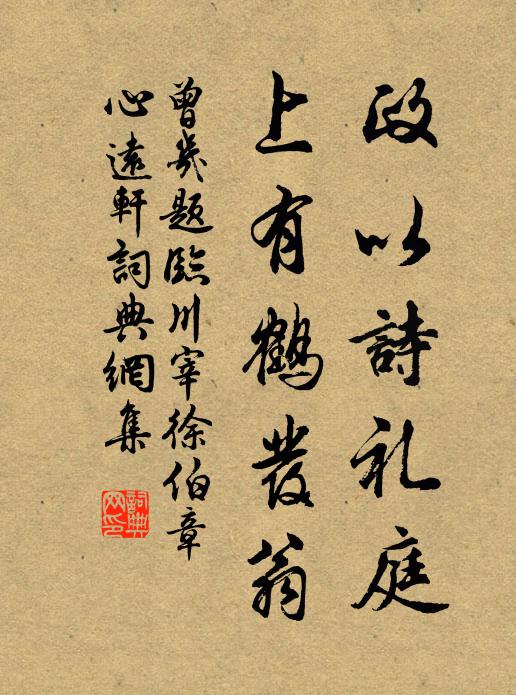 政以詩礼庭
上有鶴發翁
曾幾題臨川宰徐伯章
心遠軒詞典網集
詞典網印